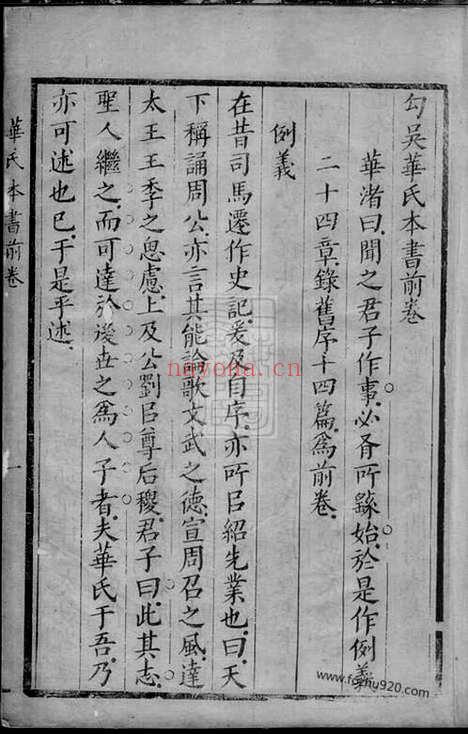 勾吳華氏本書前卷
華渚曰聞之君子作事必有所繇始於是作例義
二十四章錄舊序十四篇爲前卷
例義
在昔司馬遷作史記爰及自序亦所㠯紹先業也曰天
下稱誦周公亦言其能論歌文武之德宣周召之風達
太王王季之思慮上及公劉㠯尊后稷君子曰此其志
聖人繼之而可達於後世之爲人子者夫華氏于吾乃
亦可述也已于是乎述
華氏本書前卷
一
nayona.cn
www.fozhu920.com